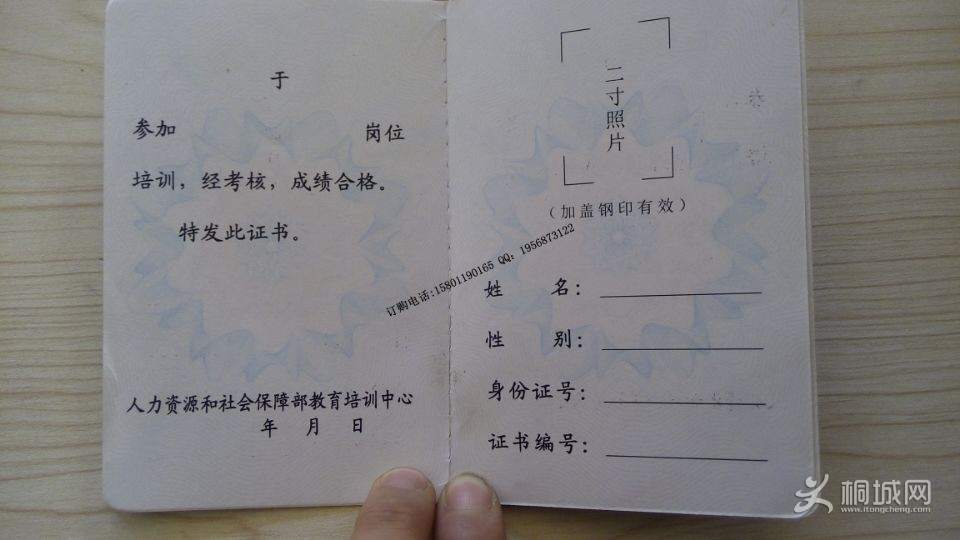 于
参加 岗位
培训，经考核，成绩合格。
特发此证书。
人力资源和社会保障部教育培训中心
年 月 日
二寸照片
（加盖钢印有效）
姓 名：
性 别：
身份证号：
证书编号：
订购电话:15801190165 QQ：1956873122
桐城网
www.itongcheng.com